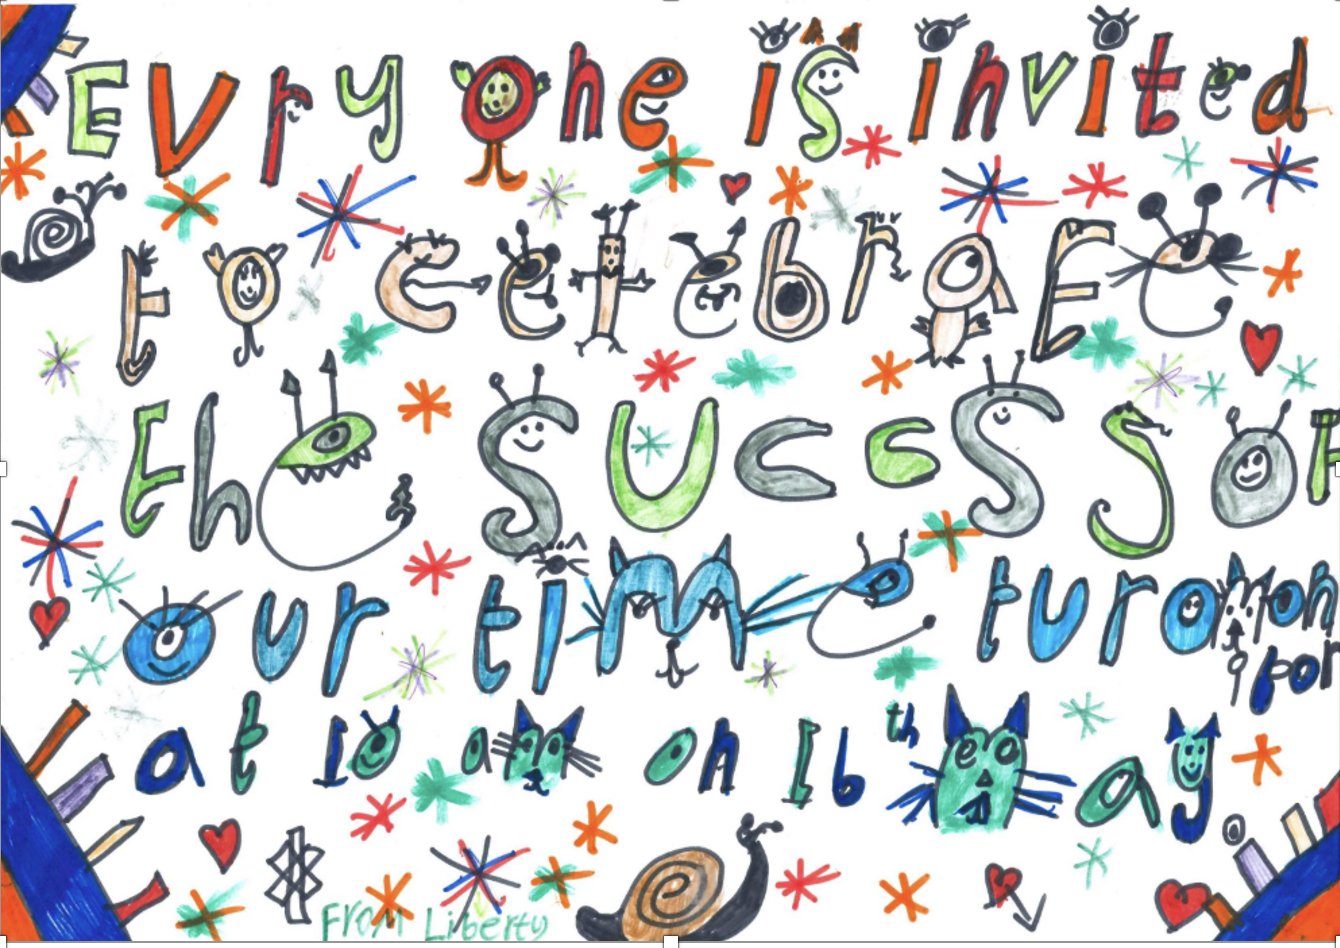 EVry one is invited
to celebrate
the SUccsS of
our time
at 10 am on 16th may
From Liberty